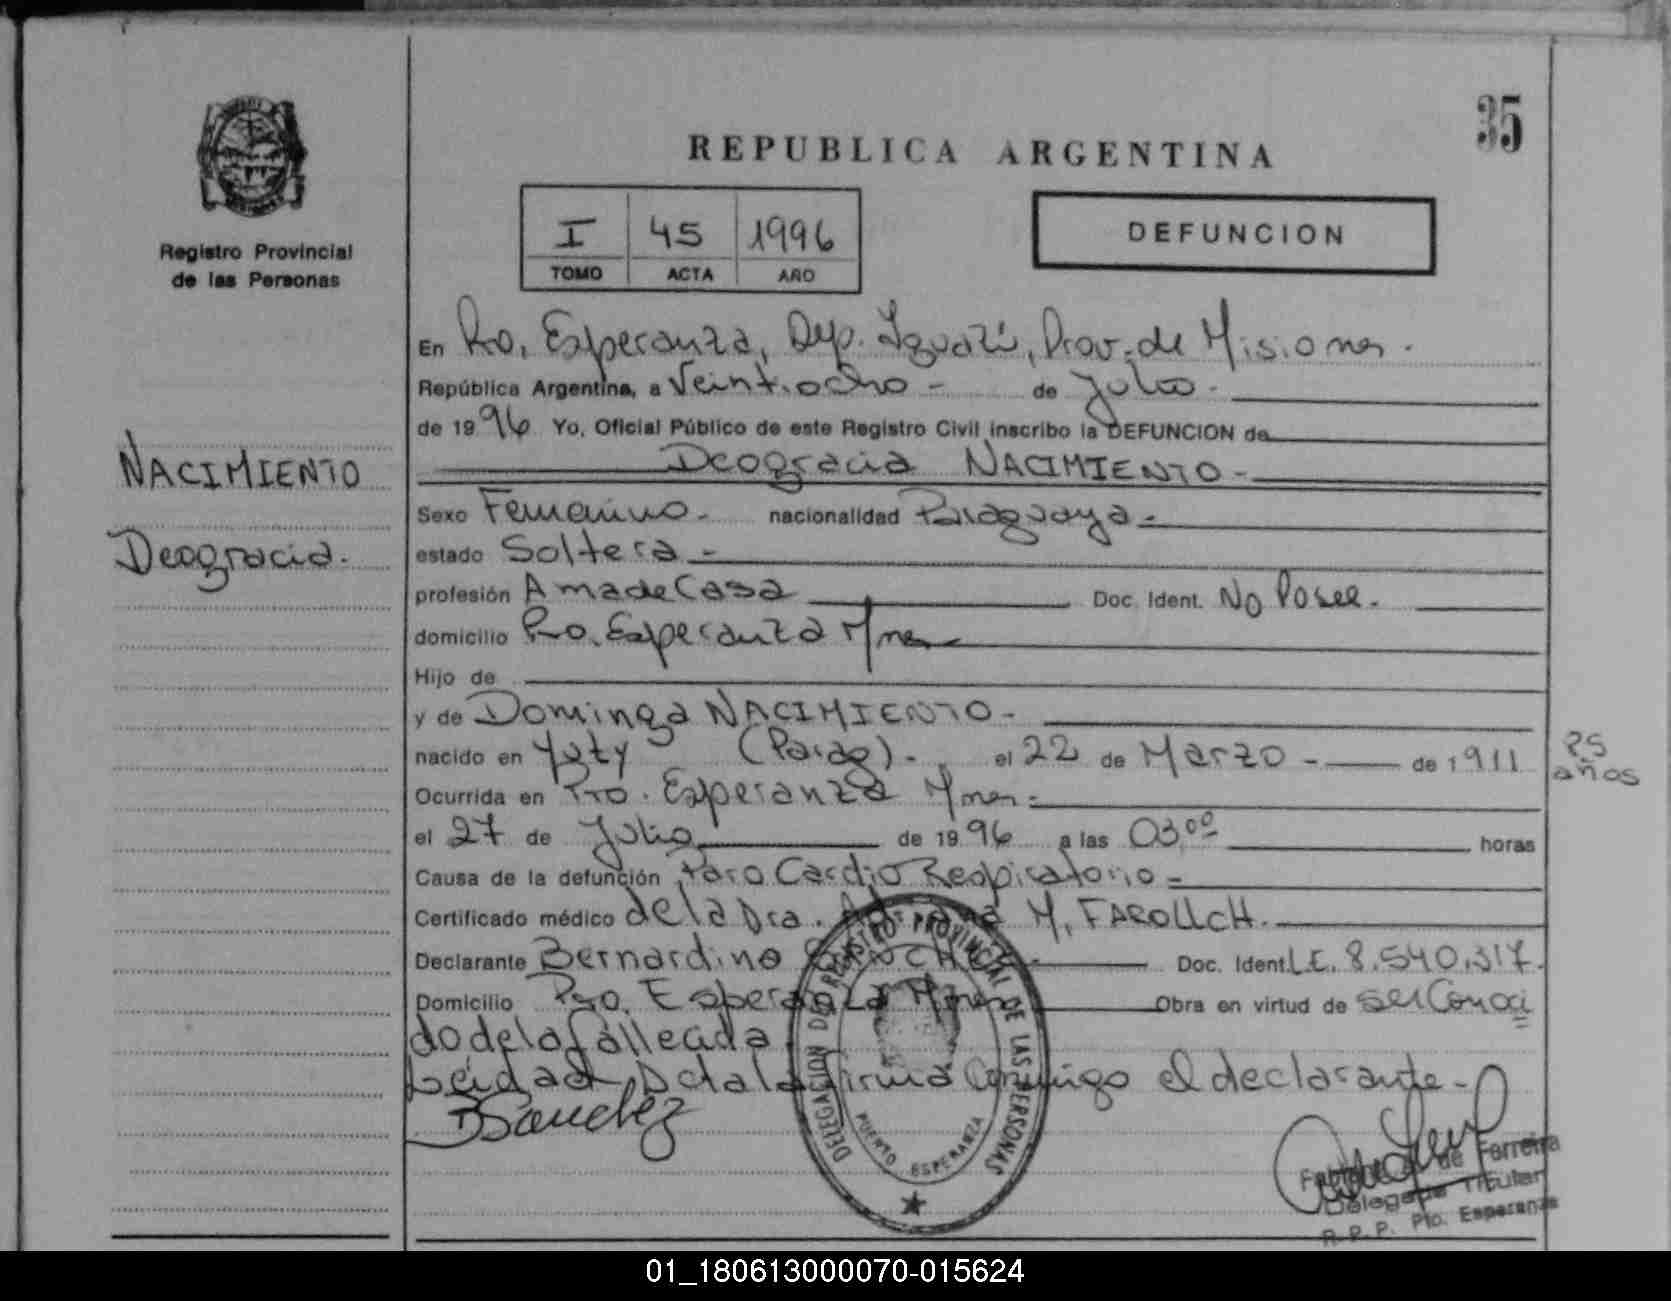 35
REPUBLICA ARGENTINA
I 45 1996
TOMO ACTA AÑO
DEFUNCION
Registro Provincial
de las Personas
NACIMIENTO
Deogracia.
En Pto. Esperanza, Dep. Iguazú, Prov. de Misiones.
República Argentina, a Veintiocho - de Julio -
de 1996 Yo, Oficial Público de este Registro Civil inscribo la DEFUNCION de
Deogracia NACIMIENTO -
Sexo Femenino - nacionalidad Paraguaya -
estado Soltera -
profesión Ama de Casa Doc. Ident. No Posee.
domicilio Pto. Esperanza Mnes
Hijo de
y de Dominga NACIMIENTO -
nacido en Yuty (Parag). - el 22 de Marzo - de 1911
años
Ocurrida en Pto. Esperanza Mnes -
el 27 de Julio de 1996 a las 03,00 horas
Causa de la defunción Paro Cardio Respiratorio -
Certificado médico de la Dra. M. FAROLLCH.
Declarante Bernardino SANCHEZ - Doc. Ident. L.E. 8.540.317.
Domicilio Pto. Esperanza Mnes Obra en virtud de ser Conoci
do de la fallecida.
Leida el Acta la firma Conmigo el declarante -
BSanchez
DELEGACION DEL REGISTRO PROVINCIAL DE LAS PERSONAS
PUERTO ESPERANZA
de Ferreira
Delegada Titular
R. P. P. Pto. Esperanza
01_180613000070-015624